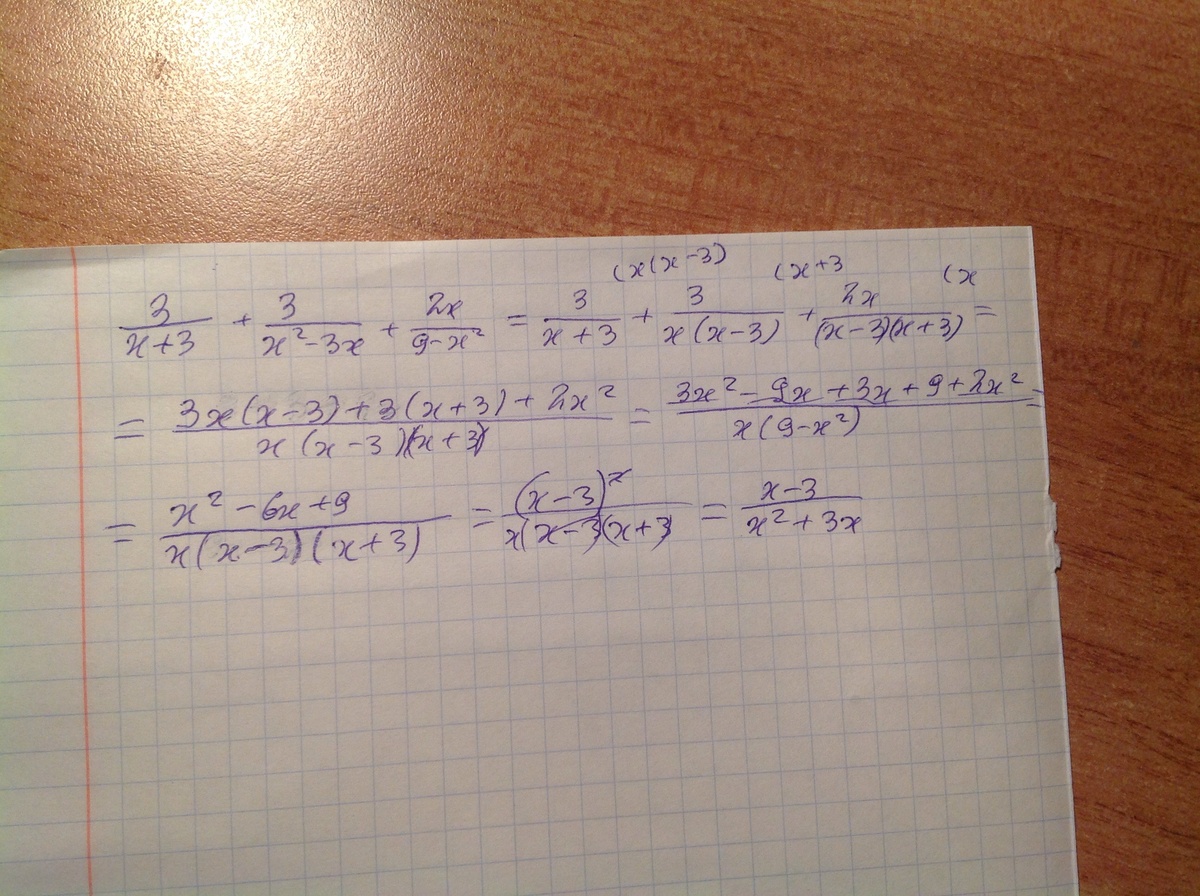 (x(x-3) (x+3 (x
3/(x+3) + 3/(x²-3x) + 2x/(9-x²) = 3/(x+3) + 3/(x(x-3)) + 2x/((x-3)(x+3)) =
= (3x(x-3)+3(x+3)+2x²)/(x(x-3)(x+3)) = (3x²-9x+3x+9+2x²)/(x(9-x²)) =
= (x²-6x+9)/(x(x-3)(x+3)) = (x-3)²/(x(x-3)(x+3)) = (x-3)/(x²+3x)